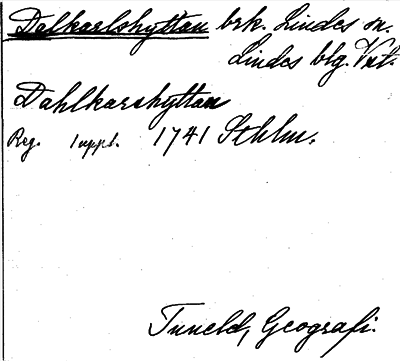 Dalkarlshyttan brk. Lindes sn.
Lindes blg. Vstm.
Dahlkarshyttan
Reg. 1 uppl. 1741 Sthlm.
Tuneld, Geografi.